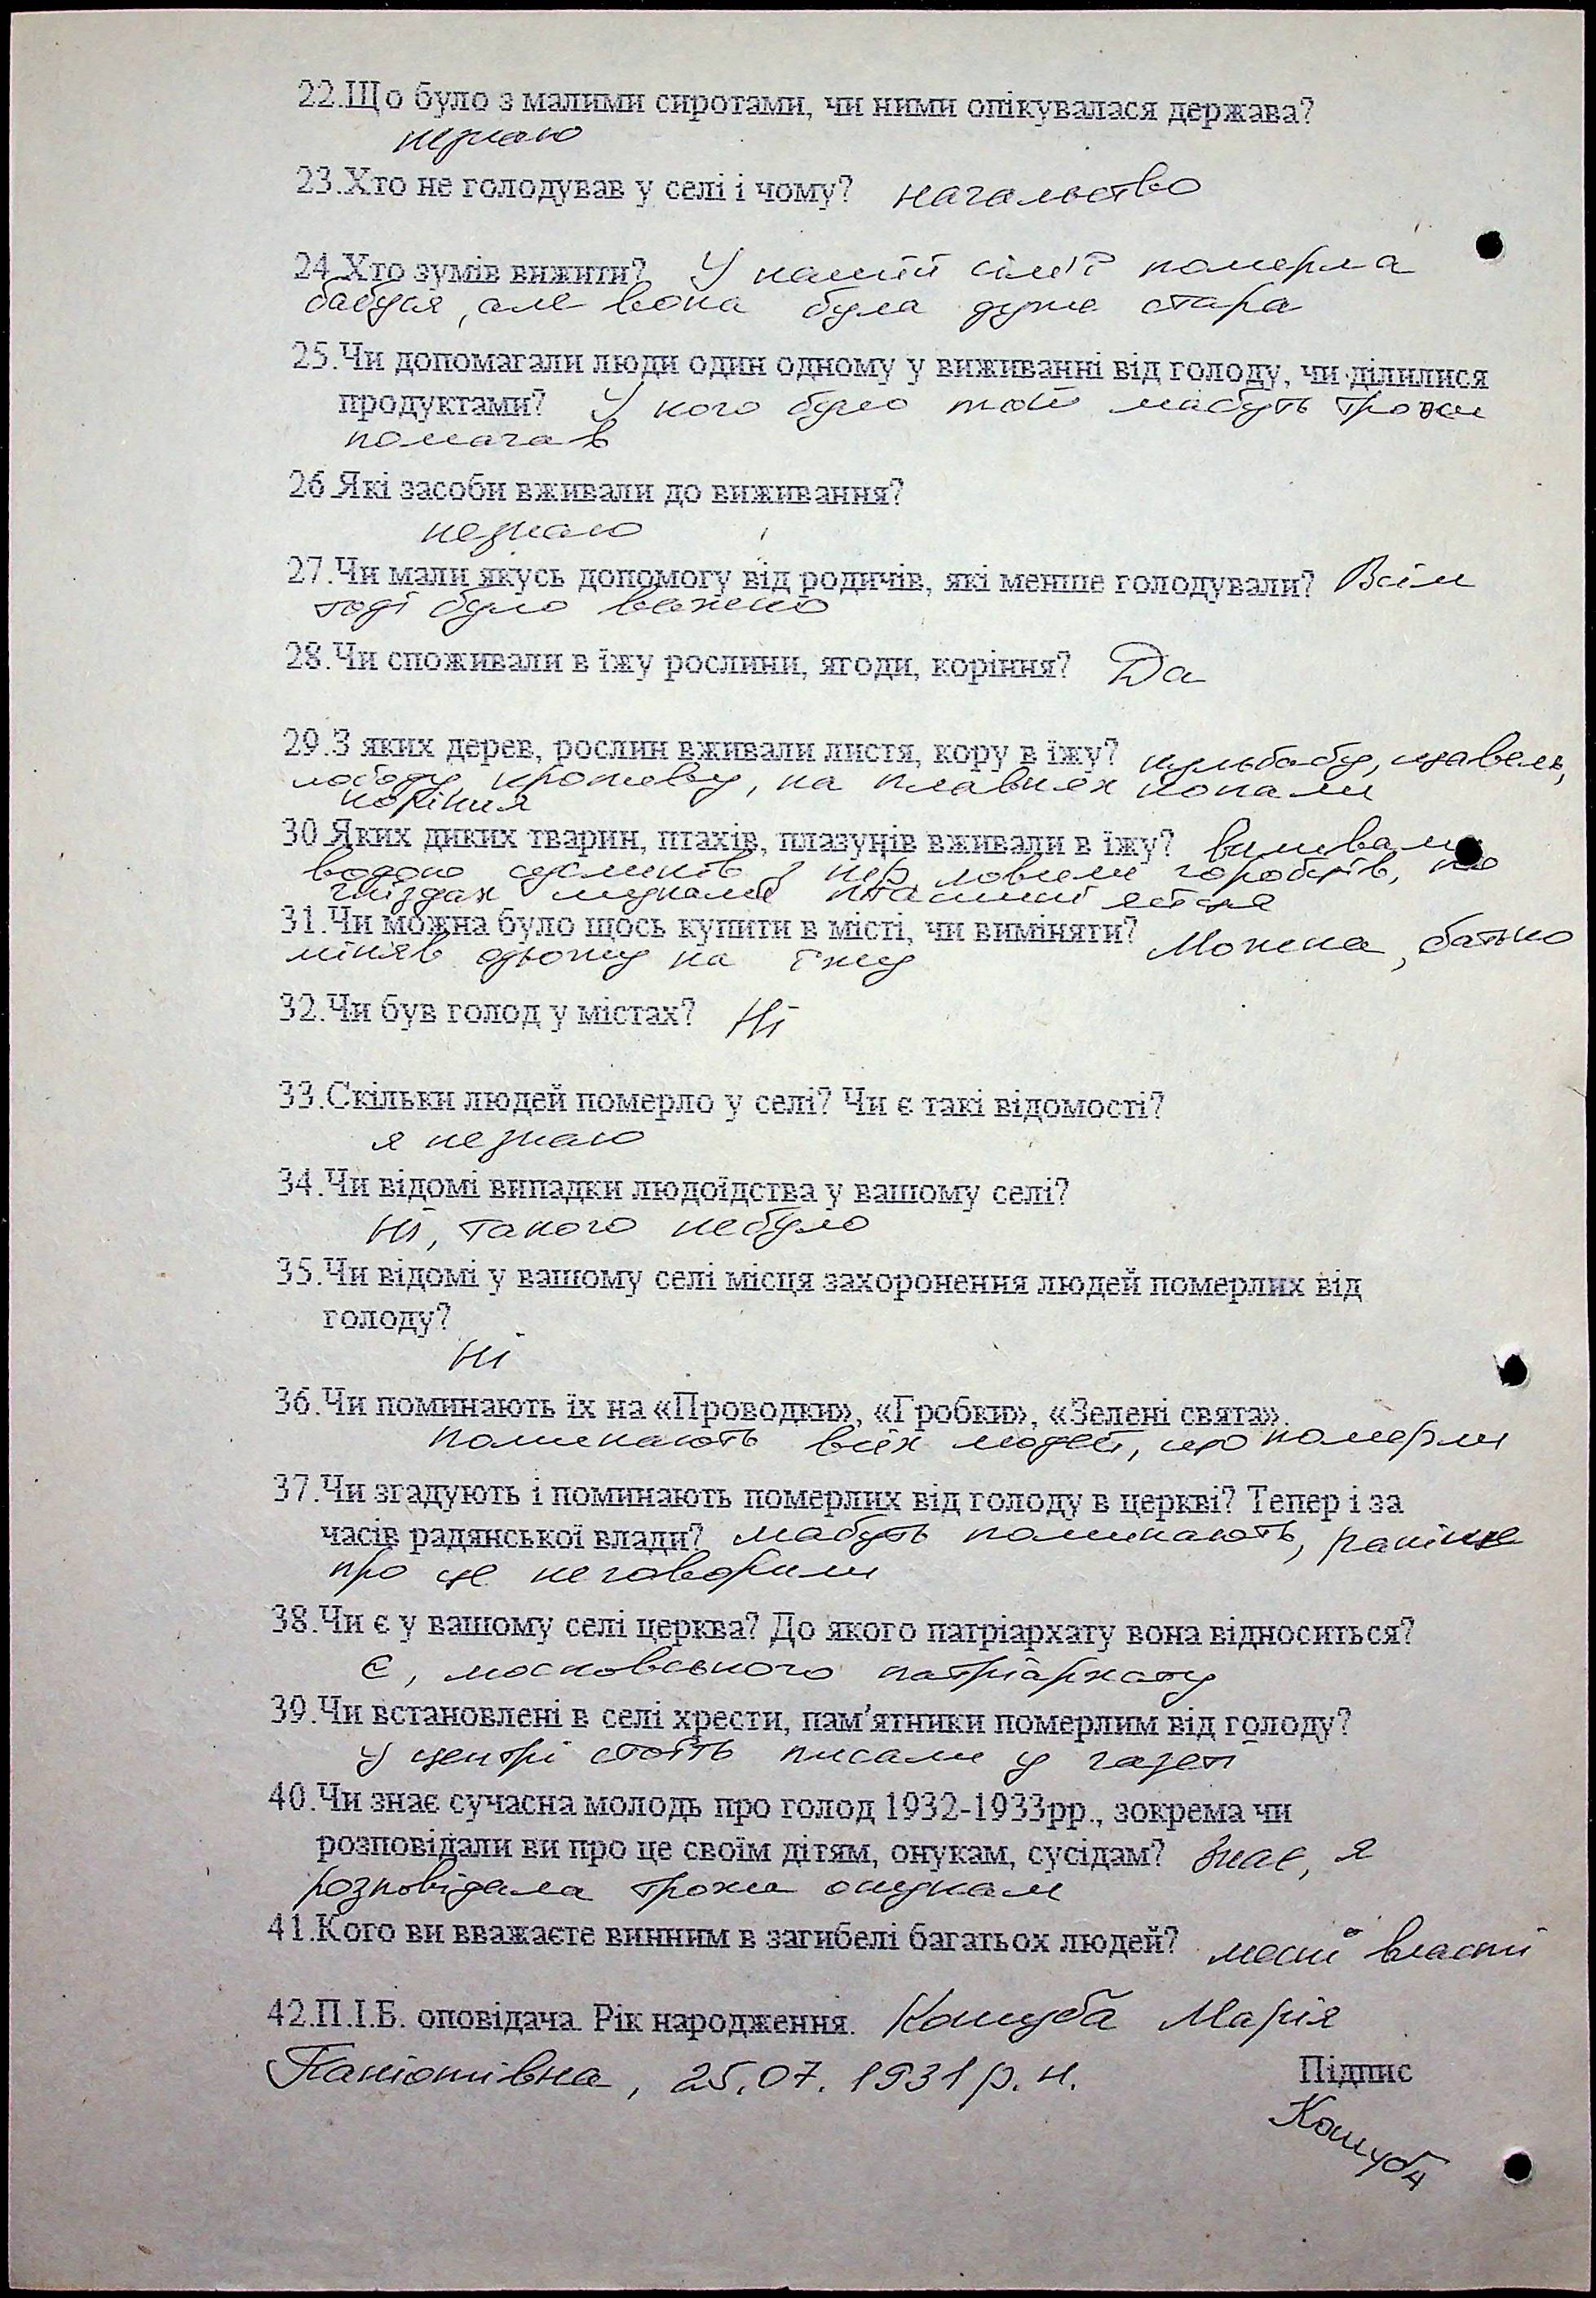 22.Що було з малими сиротами, чи ними опікувалася держава?
незнаю
23.Хто не голодував у селі і чому? начальство
24.Хто зумів вижити? У нашій сім'ї померла
бабуся, але вона була дуже стара
25.Чи допомагали люди один одному у виживанні від голоду, чи ділилися
продуктами? У кого було той мабуть трохи
помагав
26.Які засоби вживали до виживання?
незнаю
27.Чи мали якусь допомогу від родичів, які менше голодували? Всім
тоді було важено
28.Чи споживали в їжу рослини, ягоди, коріння? Да
29.З яких дерев, рослин вживали листя, кору в їжу? кульбабу, щавель,
лободу, кропеву, на плавнях копали
коріння
30.Яких диких тварин, птахів, плазунів вживали в їжу? виливали
водою сусликів з нір, ловили горобців, по
гніздах шукали пташині яйця
31.Чи можна було щось купити в місті, чи виміняти? Можна, батько
міняв одьожу на їжу
32.Чи був голод у містах? Ні
33.Скільки людей померло у селі? Чи є такі відомості?
я незнаю
34.Чи відомі випадки людоїдства у вашому селі?
Ні, такого небуло
35.Чи відомі у вашому селі місця захоронення людей померлих від
голоду?
Ні
36.Чи поминають їх на «Проводки», «Гробки», «Зелені свята».
поминають всіх людей, що померли
37.Чи згадують і поминають померлих від голоду в церкві? Тепер і за
часів радянської влади? мабуть поминають, раніше
про це неговорили
38.Чи є у вашому селі церква? До якого патріархату вона відноситься?
Є, московського патріархату
39.Чи встановлені в селі хрести, пам’ятники померлим від голоду?
У центрі стоїть писали у газеті
40.Чи знає сучасна молодь про голод 1932-1933рр., зокрема чи
розповідали ви про це своїм дітям, онукам, сусідам? Знає, я
розповідала трохи онукам
41.Кого ви вважаєте винним в загибелі багатьох людей? власті
42.П.І.Б. оповідача. Рік народження. Кошуба Марія
Панютівна, 25.07.1931р.н.
Підпис
Кошуба